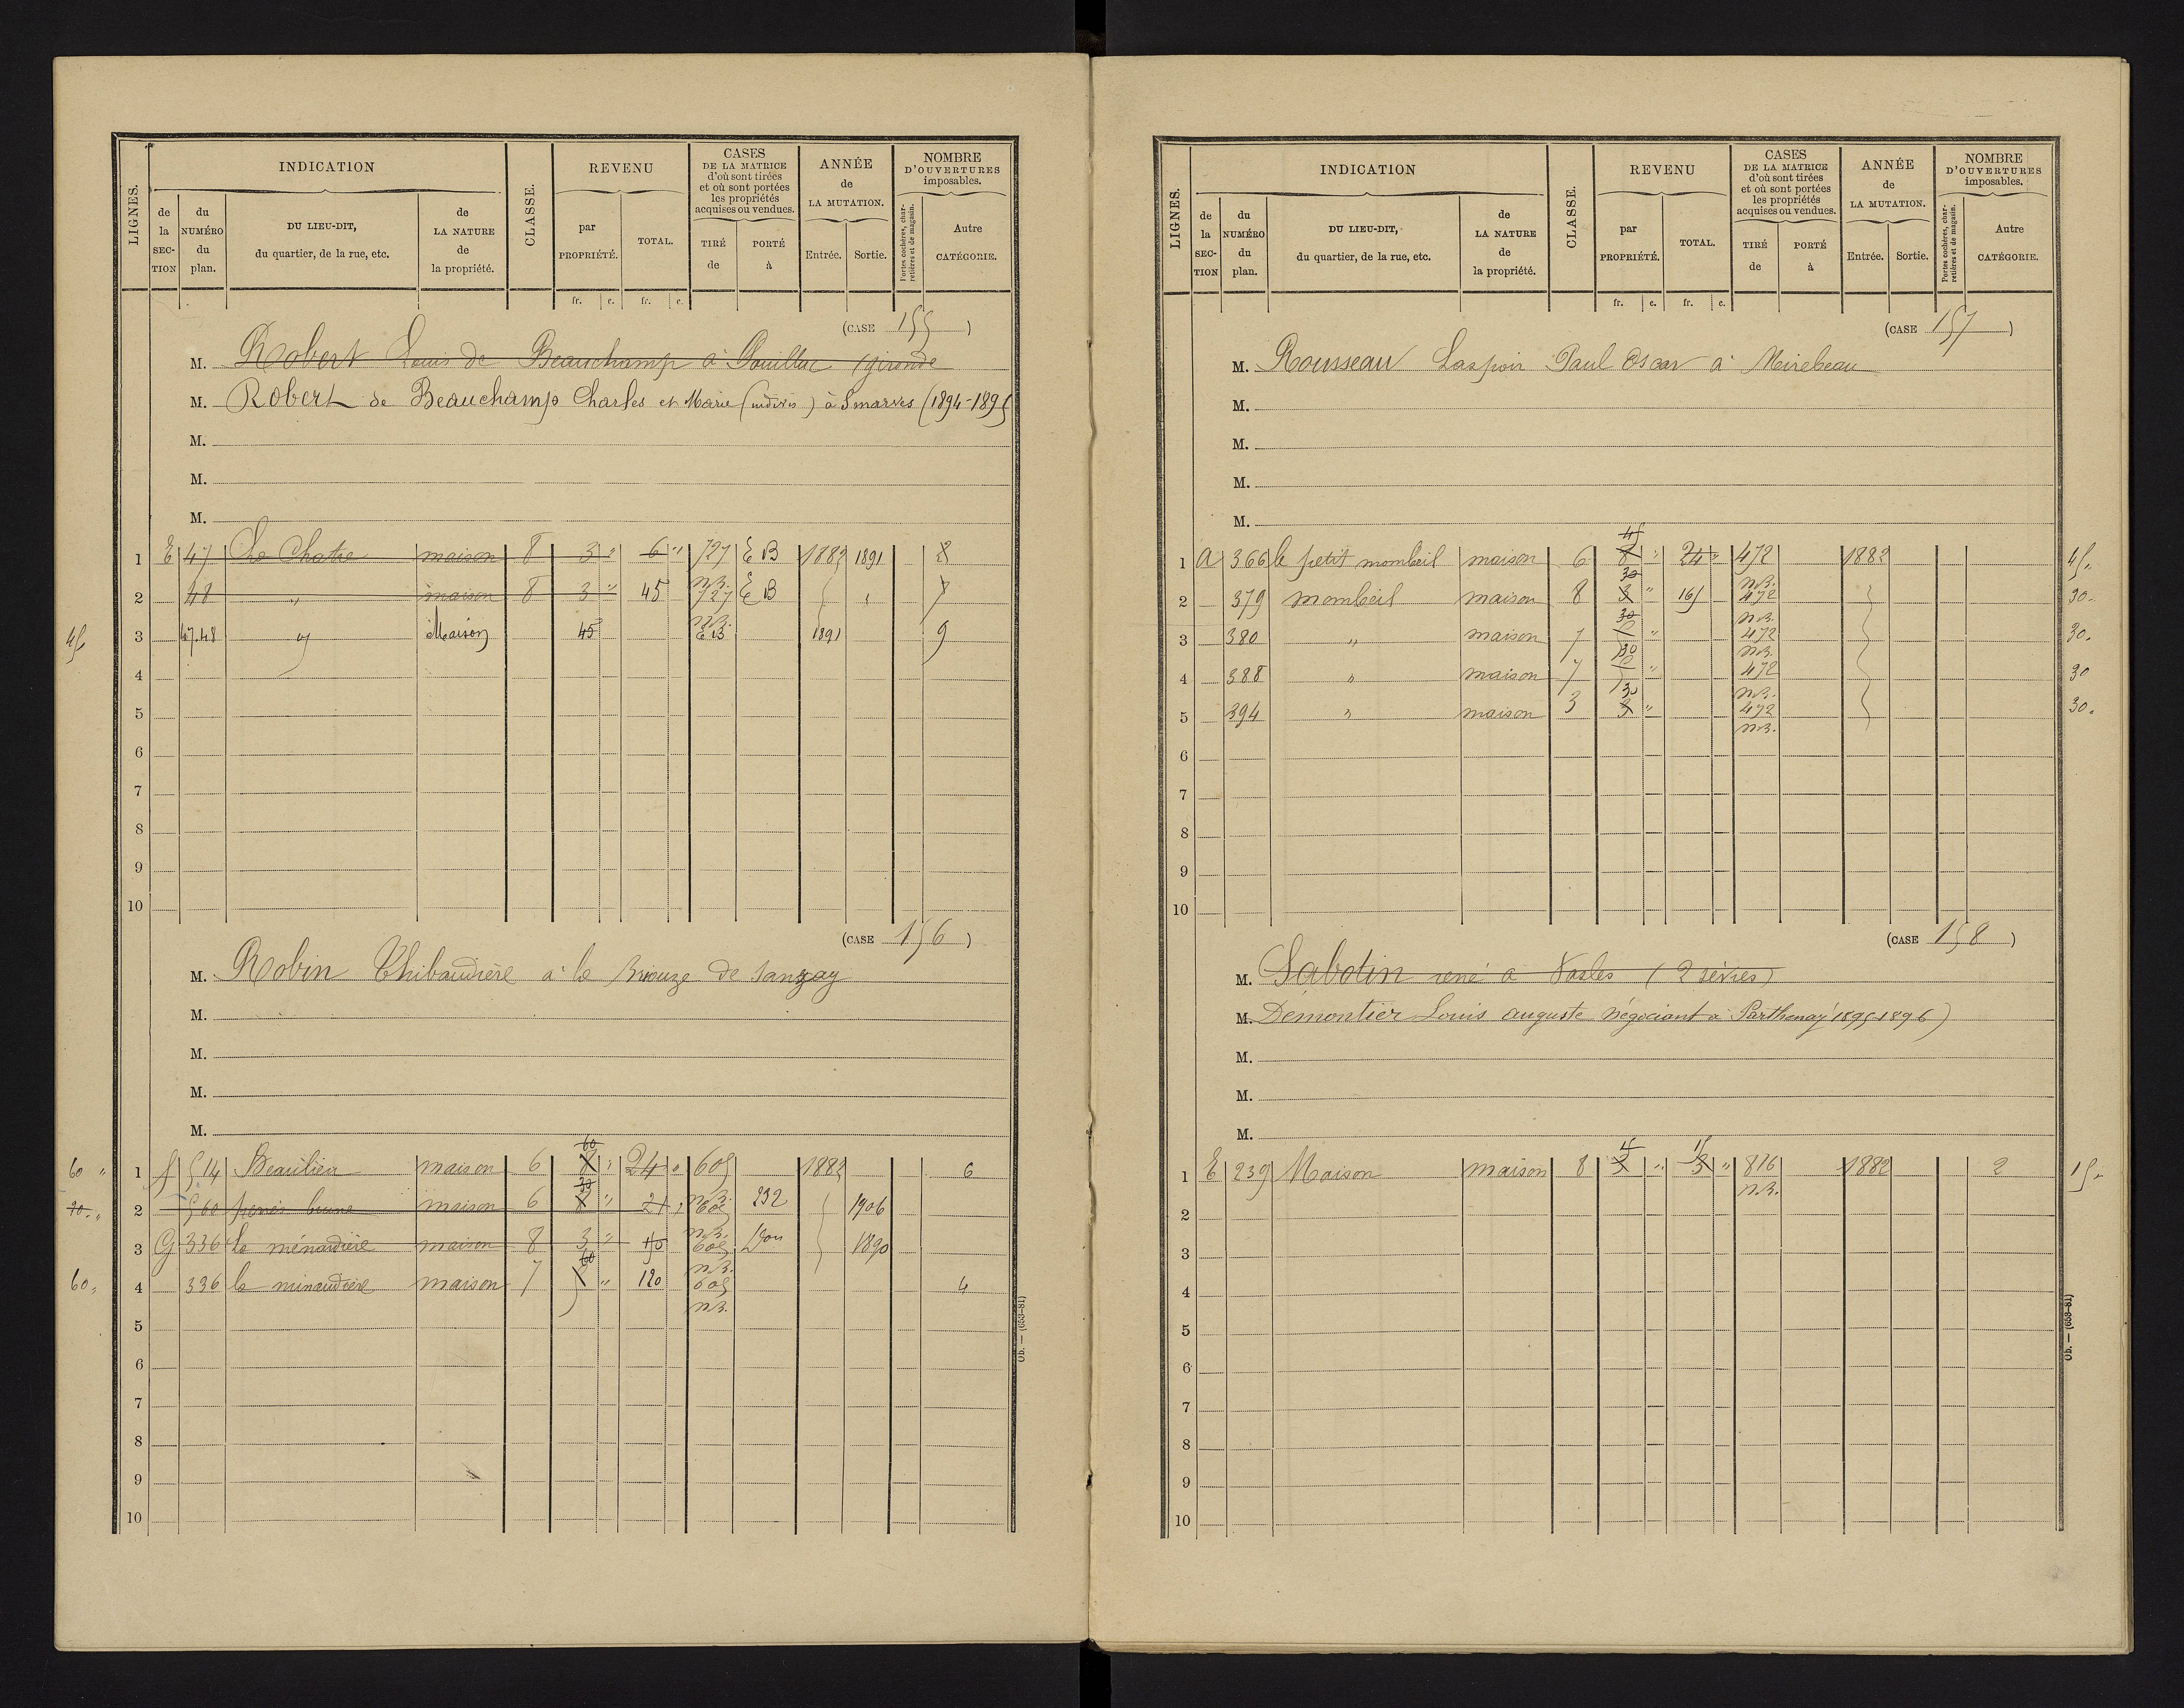 LIGNES. INDICATION CLASSE. REVENU CASES DE LA MATRICE d'où sont tirées et où sont portées les propriétés acquises ou vendues. ANNÉE de LA MUTATION. NOMBRE D'OUVERTURES imposables.
de la SECTION du NUMÉRO du plan. DU LIEU-DIT, du quartier, de la rue, etc. de LA NATURE de la propriété. par PROPRIÉTÉ. TOTAL. TIRÉ de PORTÉ à Entrée. Sortie. Portes cochères, charretières et de magasin. Autre CATÉGORIE.
fr. c. fr. c.
(CASE 155)
M. Robert Louis de Beauchamp à Pouillac (gironde
M. Robert de Beauchamp Charles et Marie (indivis) à Smarves (1894-1895
M.
M.
M.
1 E 47 La Chatre maison 8 3 " 6 " 727 E B 1882 1891 8
n.B.
2 48 " maison 8 3 " 45 727 E B "
n.B.
45 3 47.48 " Maison 45 E B 1891 9
4
5
6
7
8
9
10
(CASE 156)
M. Robin Thibaudière à la Briouze de Sanxay
M.
M.
M.
M.
60
60 " 1 f 514 Beaulieu maison 6 8 " 24 " 605 1882 6
30 n.B.
2 560 maison 6 8 " 21 605 232 1906
n.B.
3 G 336 la ménardière maison 8 3 " 150 605 1890
60 n.B.
60 " 4 336 la minaudière maison 7 " 120 605 4
n.B.
5
6
7
8
9
10
Ob. — (653-81)
LIGNES. INDICATION CLASSE. REVENU CASES DE LA MATRICE d'où sont tirées et où sont portées les propriétés acquises ou vendues. ANNÉE de LA MUTATION. NOMBRE D'OUVERTURES imposables.
de la SECTION du NUMÉRO du plan. DU LIEU-DIT, du quartier, de la rue, etc. de LA NATURE de la propriété. par PROPRIÉTÉ. TOTAL. TIRÉ de PORTÉ à Entrée. Sortie. Portes cochères, charretières et de magasin. Autre CATÉGORIE.
fr. c. fr. c.
(CASE 157)
M. Rousseau Laspoir Paul Oscar à Mirebeau
M.
M.
M.
M.
45
1 A 366 le petit mombeil maison 6 8 " 24 " 472 1882 45.
30 n.B.
2 379 mombeil maison 8 3 " 165 472 30.
30 n.B.
3 380 " maison 7 " 472 30.
30 n.B.
4 388 " maison 7 " 472 30
30 n.B.
5 394 " maison 3 3 " 472 30.
n.B.
6
7
8
9
10
(CASE 158)
M. Sabotin rené à Vasles (2 sèvres)
M. Démontier Louis auguste négociant à Parthenay (1895-1896)
M.
M.
M.
15 15
1 E 239 Maison maison 8 3 " 3 " 816 1882 2 15.
n.B.
2
3
4
5
6
7
8
9
10
Ob. — (653-81)